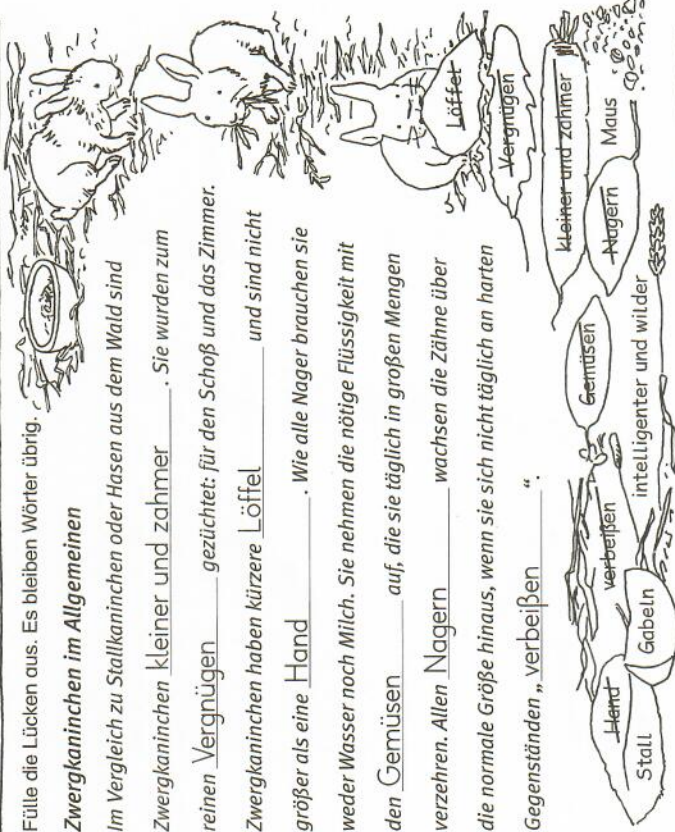 Fülle die Lücken aus. Es bleiben Wörter übrig.
Zwergkaninchen im Allgemeinen
Im Vergleich zu Stallkaninchen oder Hasen aus dem Wald sind
Zwergkaninchen kleiner und zahmer. Sie wurden zum
reinen Vergnügen gezüchtet: für den Schoß und das Zimmer.
Zwergkaninchen haben kürzere Löffel und sind nicht
größer als eine Hand. Wie alle Nager brauchen sie
weder Wasser noch Milch. Sie nehmen die nötige Flüssigkeit mit
den Gemüsen auf, die sie täglich in großen Mengen
verzehren. Allen Nagern wachsen die Zähne über
die normale Größe hinaus, wenn sie sich nicht täglich an harten
Gegenständen „verbeißen“.
Hand
Stall
Gabeln
verbeißen
intelligenter und wilder
Gemüsen
Nagern
Maus
kleiner und zahmer
Vergnügen
Löffel